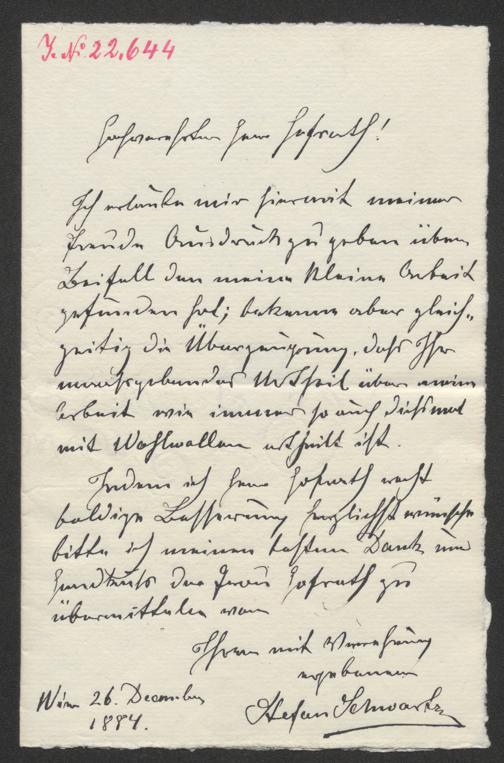 J. No 22.644
Hochverehrter Herr Hofrath!
Ich erlaube mir hiermit meiner
Freude Ausdruck zu geben über
Beifall den meine kleine Arbeit
gefunden hat; bekenne aber gleich-
zeitig die Überzeugung, dass Ihr
maassgebendes Urtheil über meine
Arbeit wie immer so auch diessmal
mit Wohlwollen ertheilt ist.
Indem ich Herr Hofrath recht
baldige Besserung herzlichst wünsche
bitte ich meinen besten Dank und
Handkuss der Frau Hofrath zu
übermitteln von
Ihrem mit Verehrung
ergebenen
Stefan Schwartz
Wien 26. December
1884.